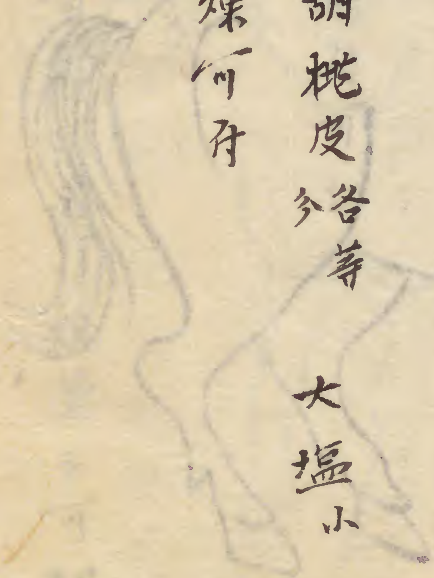 胡桃皮各等分　大塩小
煉可付